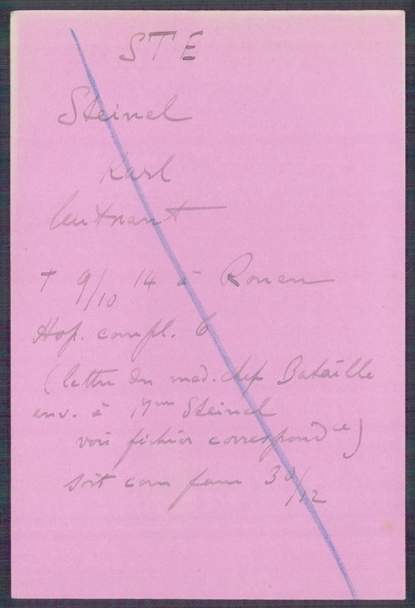 STE
Steinel
Karl
leutnant
† 9/10 14 à Rouen
Hop. compl. 6
(lettre du med. chef Bataille
env. à Mme Steinel
voir fichier correspondce)
soit com fam 30/12